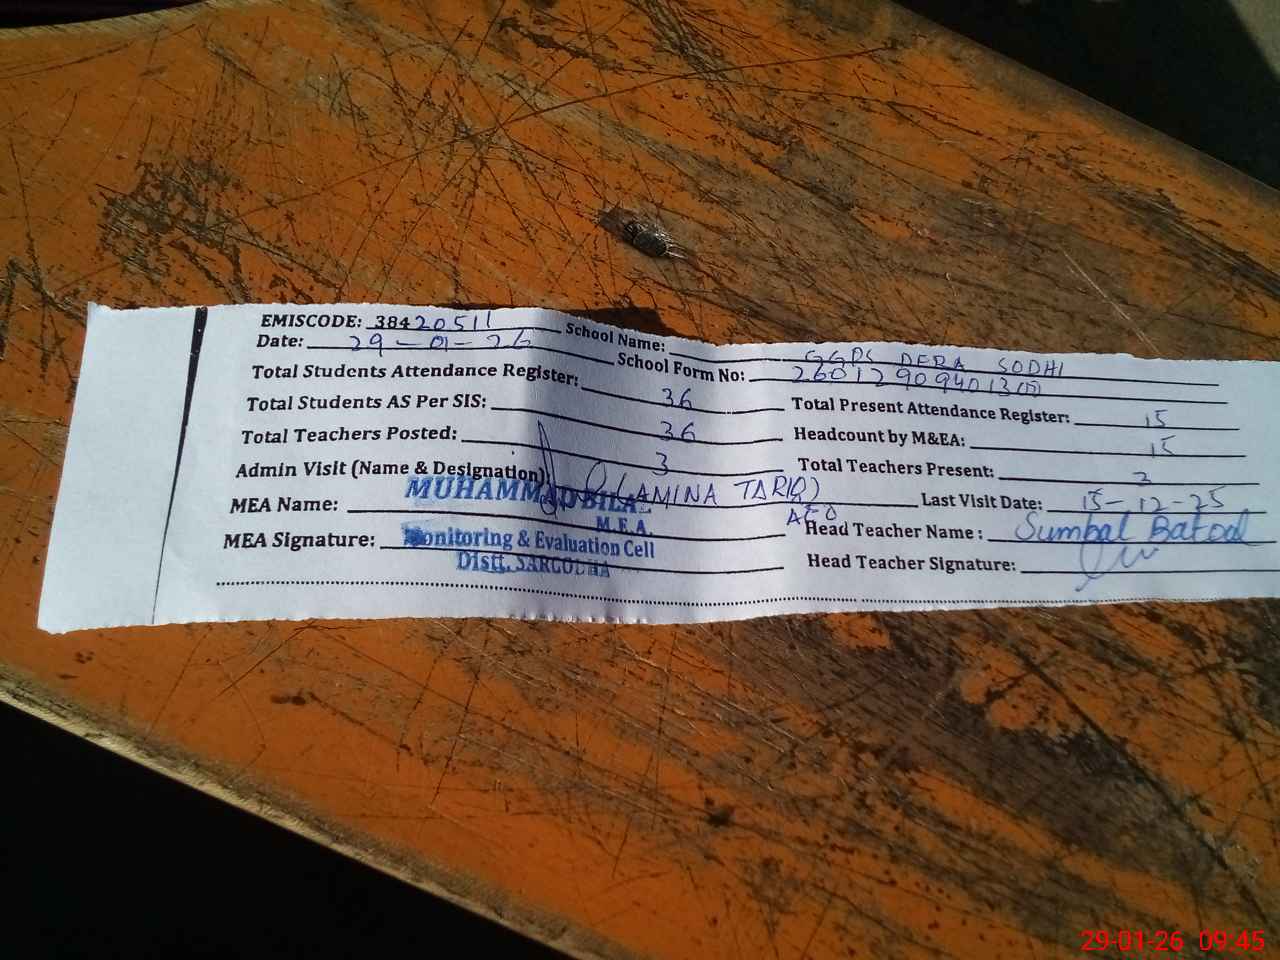 EMISCODE: 38420511 School Name: GGPS DERA SODHI
Date: 29-01-26 School Form No: 260129094013
Total Students Attendance Register: 36 Total Present Attendance Register: 15
Total Students AS Per SIS: 36 Headcount by M&EA: 15
Total Teachers Posted: 3 Total Teachers Present: 2
Admin Visit (Name & Designation): (AMINA TARIQ) AEO Last Visit Date: 15-12-25
MEA Name: MUHAMMAD BILAL Head Teacher Name : Sumbal Batool
M.E.A.
MEA Signature: Monitoring & Evaluation Cell Head Teacher Signature:
Distt. SARGODHA
29-01-26 09:45